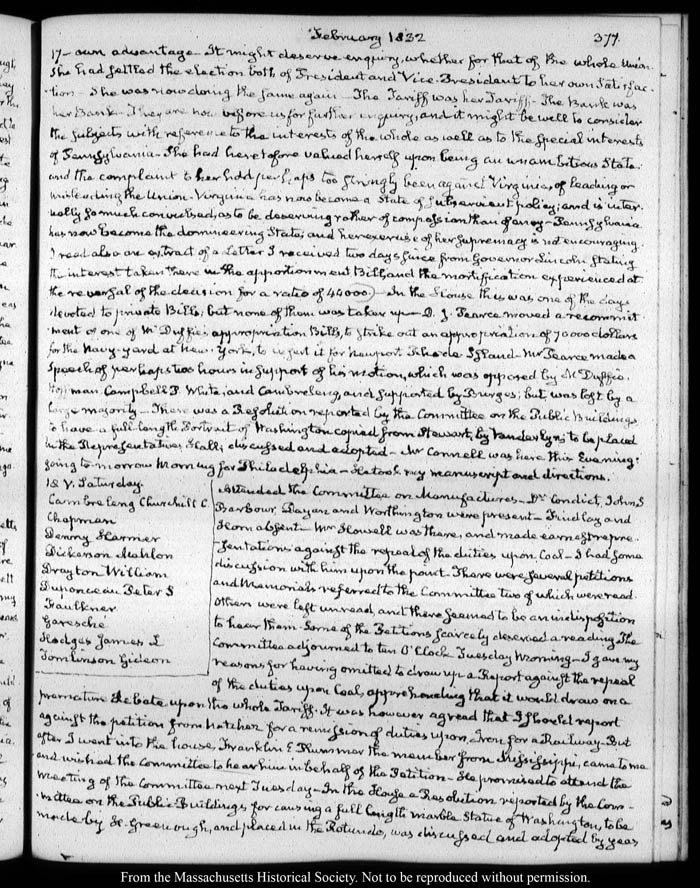 February 1832 377.
17- own advantage- It might deserve enquiry, whether for that of the whole Union
She had settled the election both of President and Vice-President to her own satisfac-
tion- She was now doing the same again- The Tariff was her Tariff- The Bank was
her Bank- They are now before us for further enquiry, and it might be well to consider
the subjects with reference to the interests of the whole as well as to the special interests
of Pennsylvania- She had heretofore valued herself upon being an unambitious State.
and the complaint to her had perhaps too strongly been against Virginia, of leading or
misleading the Union- Virginia has now become a State of subservient policy, and is inter-
nally so much convulsed, as to be deserving rather of compassion than of envy- Pennsylvania
has now become the domineering State, and her exercise of her supremacy is not encouraging.
I read also an extract of a Letter I received two days since from Governor Lincoln stating
the interest taken there in the apportionment Bill, and the mortification experienced at
the reversal of the decision for a ratio of 44000- In the House this was one of the days
devoted to private Bills; but none of them was taken up- D. J. Pearce moved a recommit-
ment of one of McDuffie's appropriation Bills, to strike out an appropriation of 70000 dollars
for the Navy-yard at New-York, to insert it for Newport Rhode-Island- Mr Pearce made a
speech of perhaps two hours in support of his motion, which was opposed by McDuffie.
Hoffman, Campbell P. White, and Cambreleng, and supported by Burges; but was lost by a
large majority- There was a Resolution reported by the Committee on the Public Buildings
to have a full-length Portrait of Washington copied from Stewart, by Vanderlyn, to be placed
in the Representatives Hall; discussed and adopted- Mr Connell was here this Evening:
going to-morrow Morning for Philadelphia- He took my manuscript and directions.
18 V. Saturday.
Cambreleng Churchill C.
Chapman
Denny Harmer
Dickerson Mahlon
Drayton William
Duponceau Peter S
Faulkner
Garesche
Hodges James L
Tomlinson Gideon
Attended the Committee on Manufactures- Dr Condict, John S
Barbour, Dayan and Worthington were present- Findlay and
Horn absent- Mr Howell was there, and made earnest repre-
sentations against the repeal of the duties upon Coal- I had some
discussion with him upon the point- There were several petitions
and Memorials referred to the Committee two of which were read.
Others were left unread, and there seemed to be an indisposition
to hear them- Some of the Petitions scarcely deserved a reading. The
Committee adjourned to ten O'Clock Tuesday Morning- I gave my
reasons for having omitted to draw up a Report against the repeal
of the duties upon Coal, apprehending that it would draw on a
premature debate upon the whole Tariff. It was however agreed that I should report
against the petition from Natchez for a remission of duties upon Iron for a Railway- But
after I went into the house, Franklin E Plummer the member from Mississippi, came to me
and wished the Committee to hear him in behalf of the Petition- He promised to attend the
Meeting of the Committee next Tuesday- In the House a Resolution reported by the Com-
mittee on the Public Buildings for causing a full length marble Statue of Washington, to be
made by H. Greenough, and placed in the Rotunda, was discussed and adopted by yeas
From the Massachusetts Historical Society. Not to be reproduced without permission.